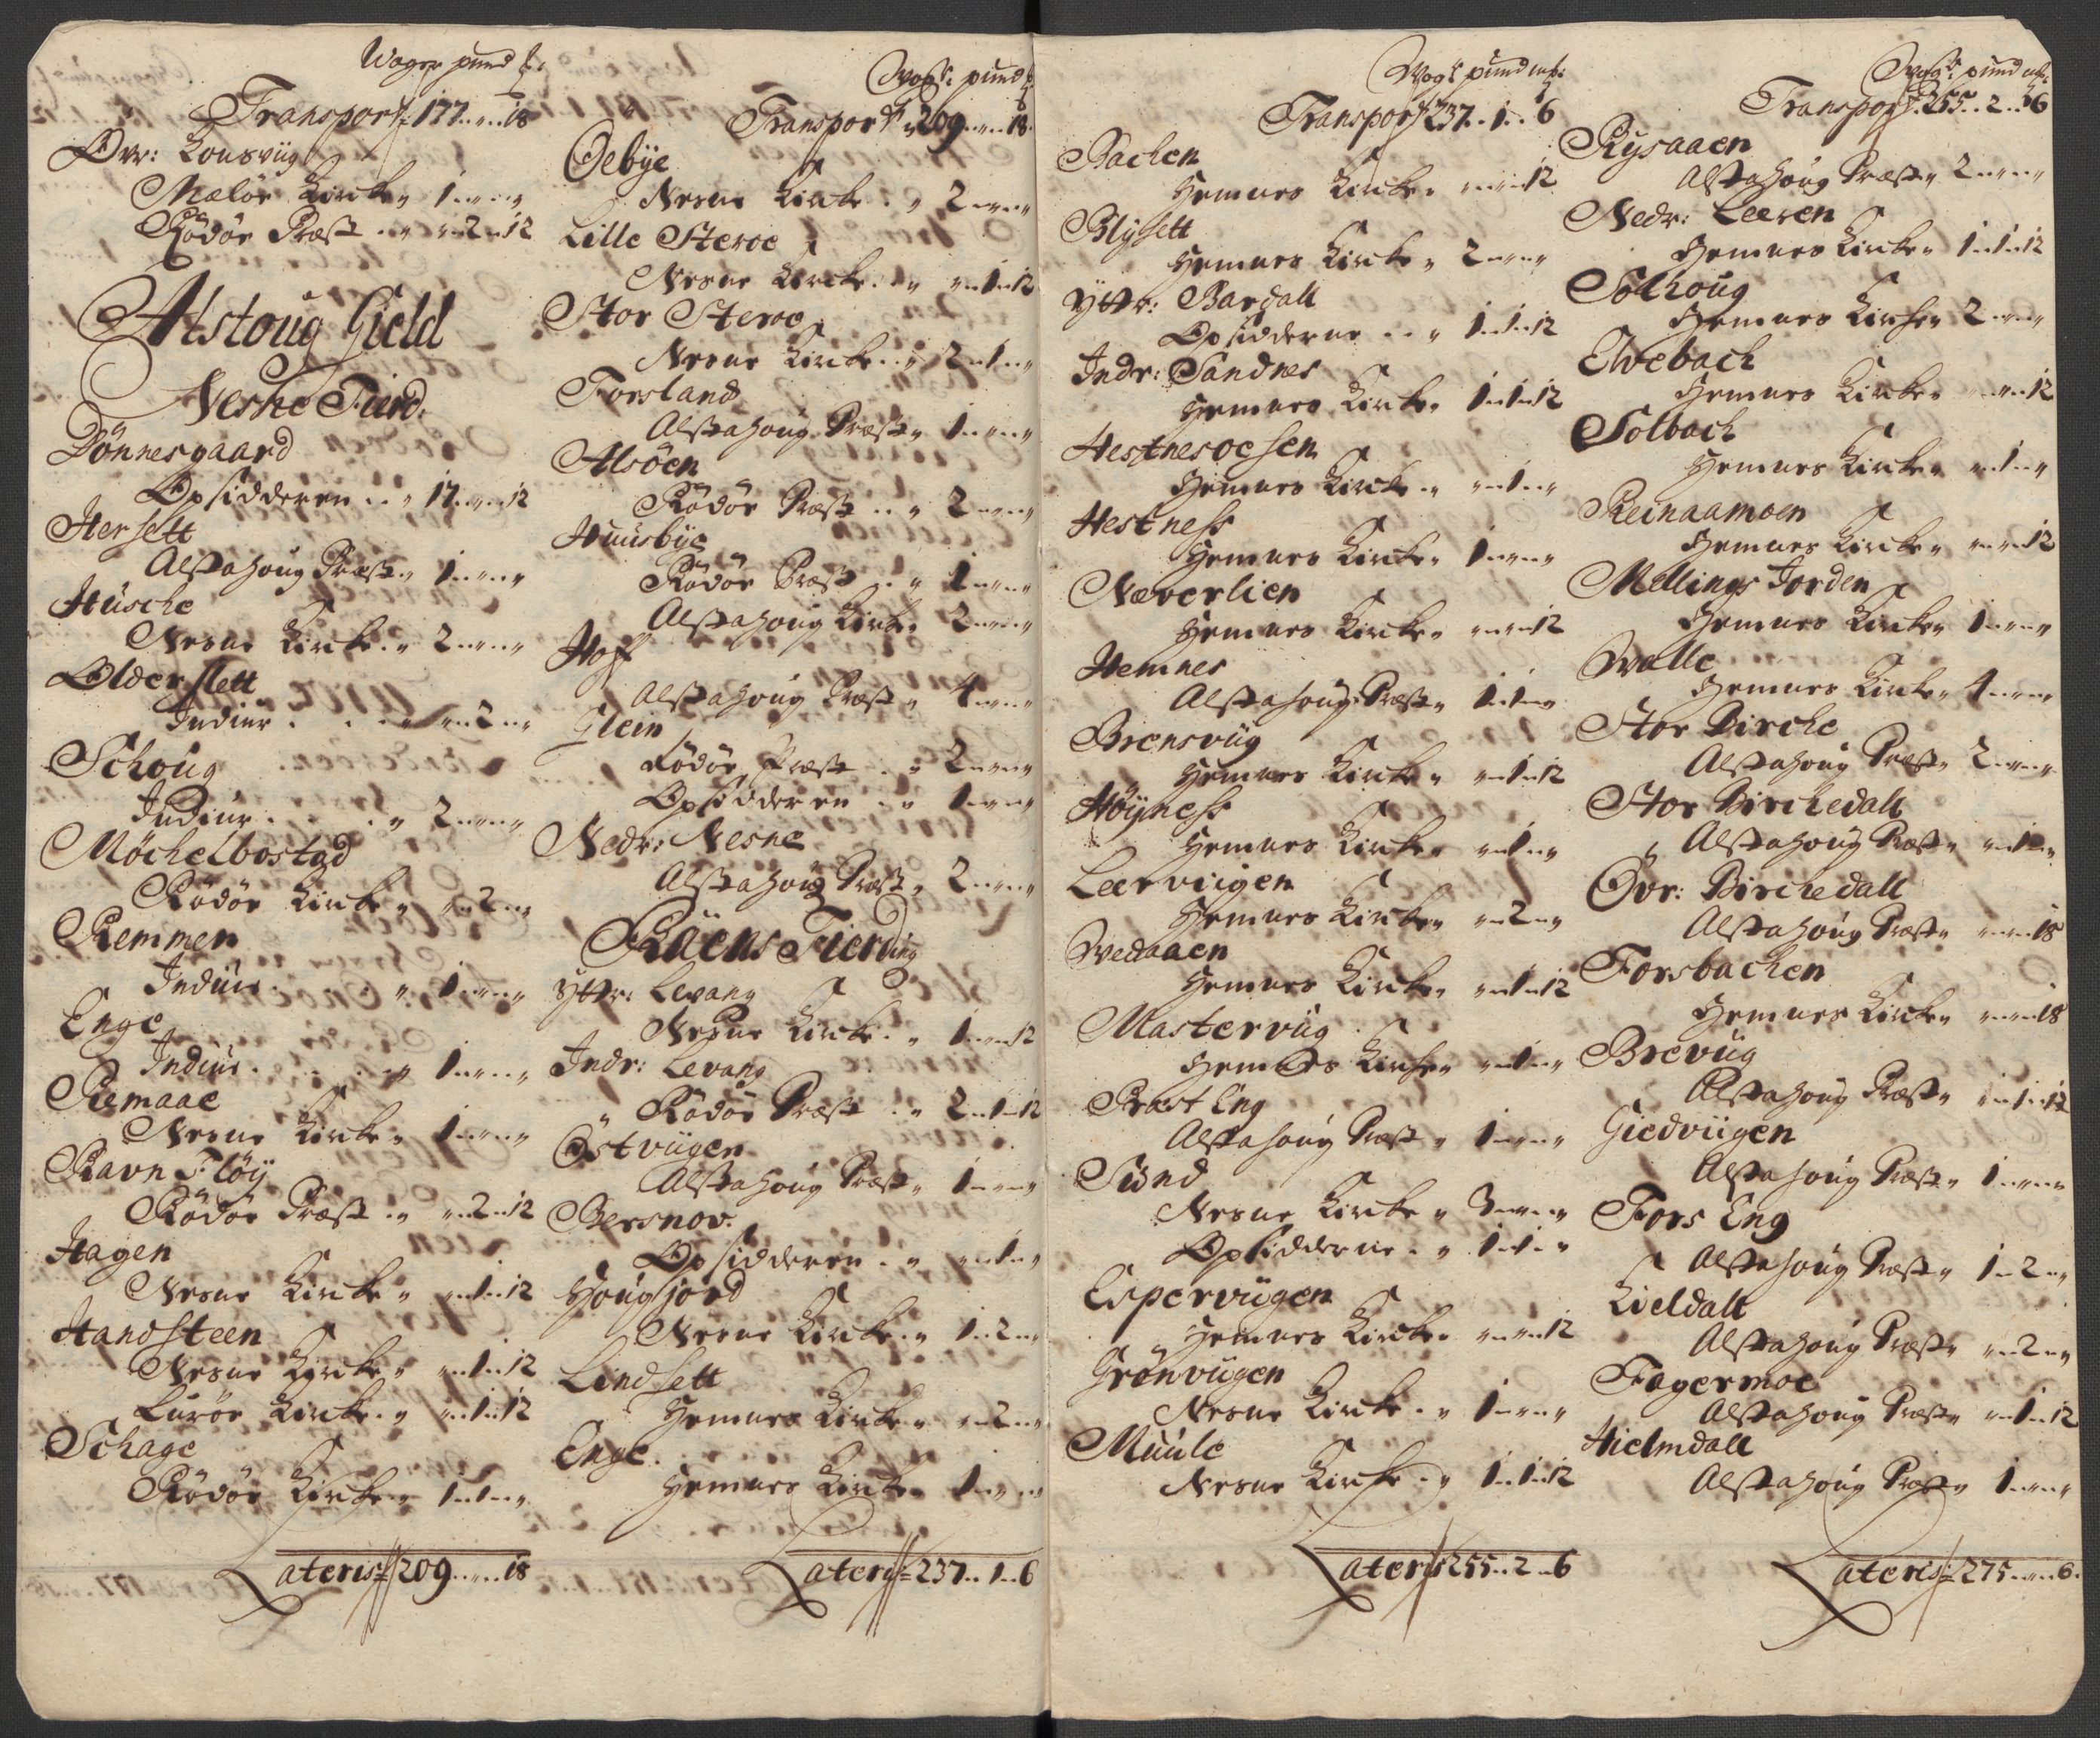 Wager pund
Transport 177 .. " .. 18
Ovr: Konsviig
Meløe Kircke " 1 " "
Rödöe Præst .. " " 2 " 12
Alstoug Gield
Nesne Fierd:
Dönnesgaard
Opsidderen .. " 17 " 12
Hersett
Alstahoug Præst " 1 " "
Húsche
Nesne Kircke " 2 " "
Olderslett
Indiur . . . " " 2 "
Schoug
Indiur . . . " 2 " "
Möchelbostad
Rödöe Kircke " " 2 "
Remmen
Indiur . " 1 " "
Enge
Indiur . . . " 1 " "
Remaae
Nesne Kircke " 1 " "
Ravn Flöy
Rödöe Præst .. " " 2 " 12
Hagen
Nesne Kircke " " 1 " 12
Handsteen
Nesne Kircke " " 1 " 12
Luröe Kircke " " 1 " 12
Schage
Rödöe Kircke " 1 " 1 "
Lateris 209 .. " .. 18
Vogr: pund
Transport 209 .. " .. 18
Oebÿe
Nesne Kircke .. " 2 " "
Lille Steroe
Nesne Kircke .. " " 1 " 12
Stor Steroe
Nesne Kircke .. " 2 " 1 "
Forsland
Alstahoug Præst " 1 " "
Alsöen
Rödöe Præst .. " 2 " "
Huusbÿe
Rödöe Præst .. " 1 " "
Alstahoug Kircke 2 " "
Hoff
Alstahoug Præst " 4 " "
Glein
Rödöe Præst .. " 2 " "
Opsidderen .. " 1 " "
Nedr: Nesne
Alstahoug Præst " 2 " "
Räens Fierding
Ytr: Levang
Nesne Kircke .. " 1 " 12
Indr: Levang
" Rödöe Præst .. " 2 " 1 " 12
Östviigen
Alstahoug Præst " 1 " "
Bersnov.
Opsidderen .. " " 1 "
Hougfjord
Nesne Kircke .. " 1 " 2 "
Lindsett
Hemnes Kircke " " 2 "
Enge.
Hemnes Kircke 1 " "
Lateris 237 .. 1 .. 6
Vogr pund mk:
Transport 237 .. 1 .. 6
Bachen
Hemnes Kircke " " " 12
Blÿsett
Hemnes Kircke " 2 " "
Ytr: Bardall
Opsidderne .. " 1 " 1 " 12
Indr: Sandnes
Hemnes Kircke " 1 " 1 " 12
Hestnesoesen
Hemnes Kircke .. " " 1 "
Hestness
Hemnes Kircke " 1 " "
Næverlien
Hemnes Kircke " " " 12
Hemnes
Alstahoug Præst " 1 " 1 "
Brensviig
Hemnes Kircke " " 1 " 12
Höÿness
Hemnes Kircke " " 1 "
Leerviigen
Hemnes Kircke " " 2 "
Wedaaen
Hemnes Kircke " " 1 " 12
Masterviig
Hemnes Kircke " " 1 "
Præst Eng
Alstahoug Præst " 1 " "
Sund
Nesne Kircke " 3 " "
Opsidderne .. " 1 " 1 "
Esperviigen
Hemnes Kircke " " " 12
Grönviigen
Nesne Kircke .. " 1 " "
Muúle
Nesne Kircke .. " 1 " 1 " 12
Lateris 255 .. 2 .. 6
Vogr: pund mk:
Transport 255 .. 2 .. 6
Rÿsaaen
Alstahoug Præst " 2 " "
Nedr: Leeren
Hemnes Kircke " 1 " 1 " 12
Solhoug
Hemnes Kircke " 2 " "
Elvebach
Hemnes Kircke " " " 12
Solbach
Hemnes Kircke " " 1 "
Reinaamoen
Hemnes Kircke " " " 12
Mellings Jorden
Hemnes Kircke " 1 " "
Walle
Hemnes Kircke " 4 " "
Stor Birche
Alstahoug Præst " 2 " "
Stor Birchedall
Alstahoug Præst " " 1 "
Övr: Birchedall
Alstahoug Præst " " " 18
Forsbachen
Hemnes Kircke " " " 18
Breviig
Alstahoug Præst " 1 " 1 " 12
Giedviigen
Alstahoug Præst " 1 " "
Fors Eng
Alstahoug Præst " 1 " 2 "
Kieldall
Alstahoug Præst " " 2 "
Fagermoe
Alstahoug Præst " " 1 " 12
Hielmdall
Alstahoug Præst " 1 " "
Lateris 275 .. " .. 6.